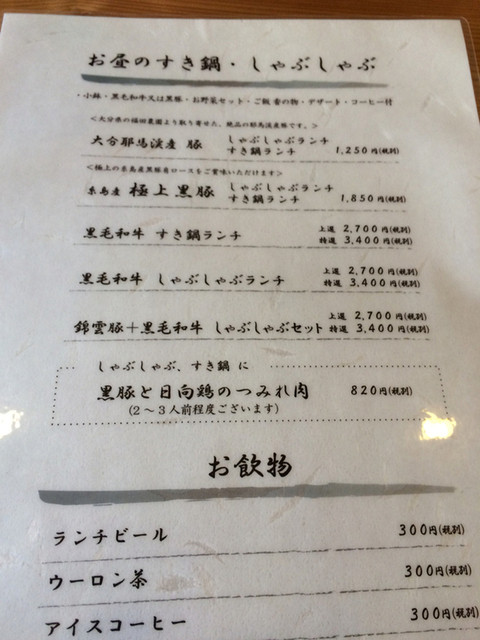 お昼のすき鍋・しゃぶしゃぶ
・小鉢・黒毛和牛又は黒豚・お野菜セット・ご飯 香の物・デザート・コーヒー付
<大分県の福田農園より取り寄せた、絶品の耶馬渓産豚です。>
大分耶馬渓産 豚 しゃぶしゃぶランチ
すき鍋ランチ 1,250円(税別)
<極上の糸島産黒豚肩ロースをご賞味いただけます>
糸島産 極上黒豚 しゃぶしゃぶランチ
すき鍋ランチ 1,850円(税別)
黒毛和牛 すき鍋ランチ 上選 2,700円(税別)
特選 3,400円(税別)
黒毛和牛 しゃぶしゃぶランチ 上選 2,700円(税別)
特選 3,400円(税別)
錦雲豚+黒毛和牛 しゃぶしゃぶセット 上選 2,700円(税別)
特選 3,400円(税別)
しゃぶしゃぶ、すき鍋 に
黒豚と日向鶏のつみれ肉 820円(税別)
(2〜3人前程度ございます)
お飲物
ランチビール 300円(税別)
ウーロン茶 300円(税別)
アイスコーヒー 300円(税別)